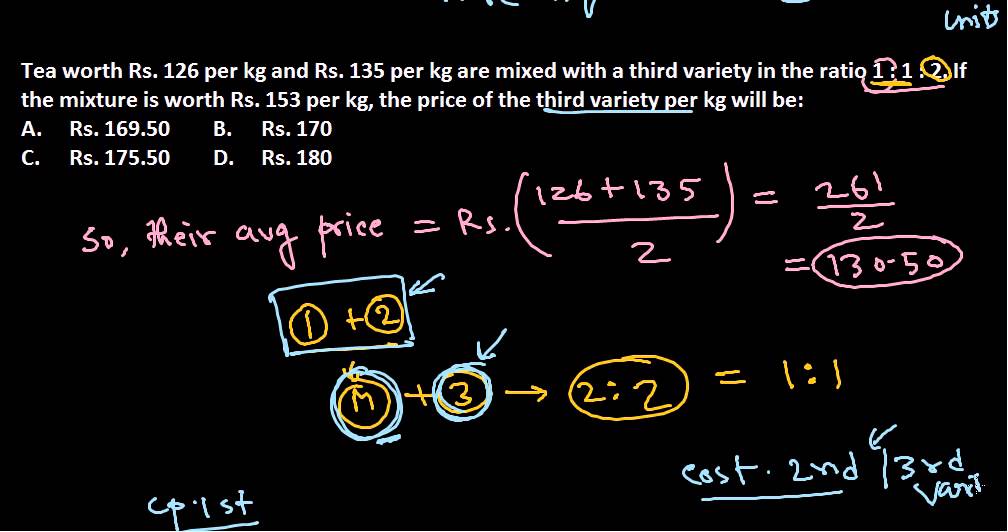 units
Tea worth Rs. 126 per kg and Rs. 135 per kg are mixed with a third variety in the ratio 1 : 1 : 2. If
the mixture is worth Rs. 153 per kg, the price of the third variety per kg will be:
A. Rs. 169.50 B. Rs. 170
C. Rs. 175.50 D. Rs. 180
So, their avg price = Rs. (126+135 / 2) = 261 / 2
= 130.50
1 + 2
M + 3 → 2:2 = 1:1
cost. 2nd / 3rd
vari
cp. 1st